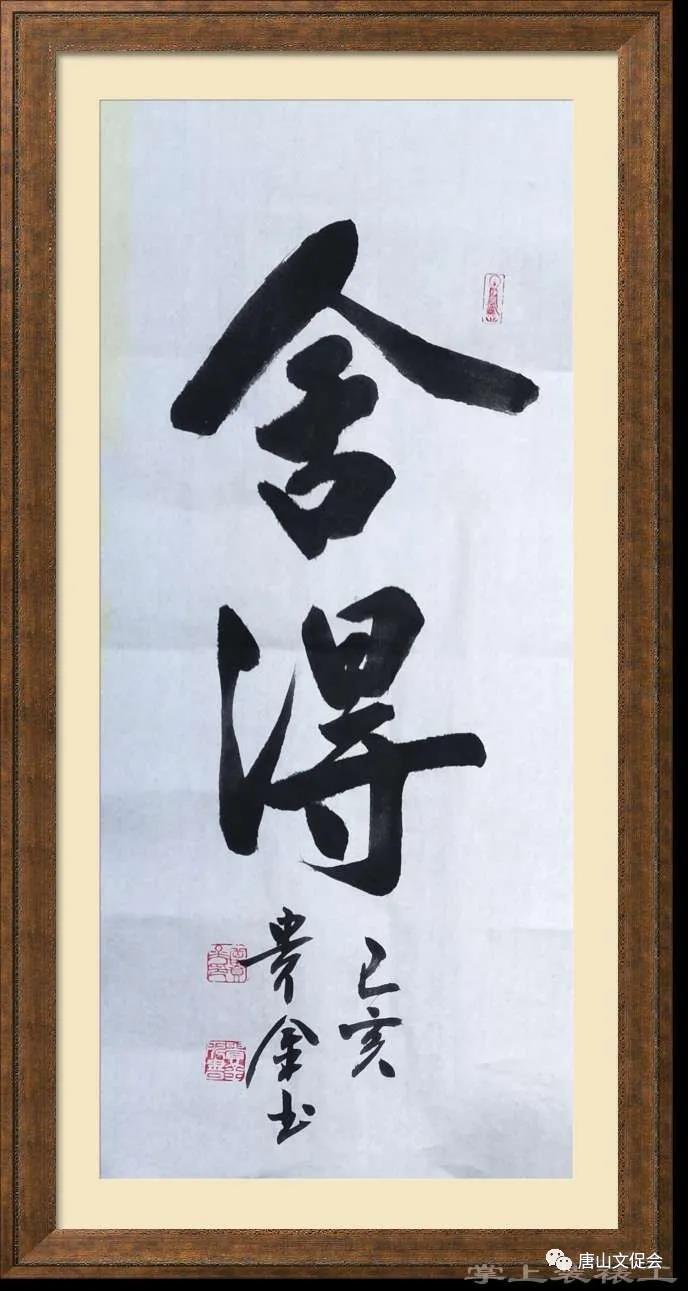 舍得
己亥
贵金书
唐山文促会
掌上装裱工